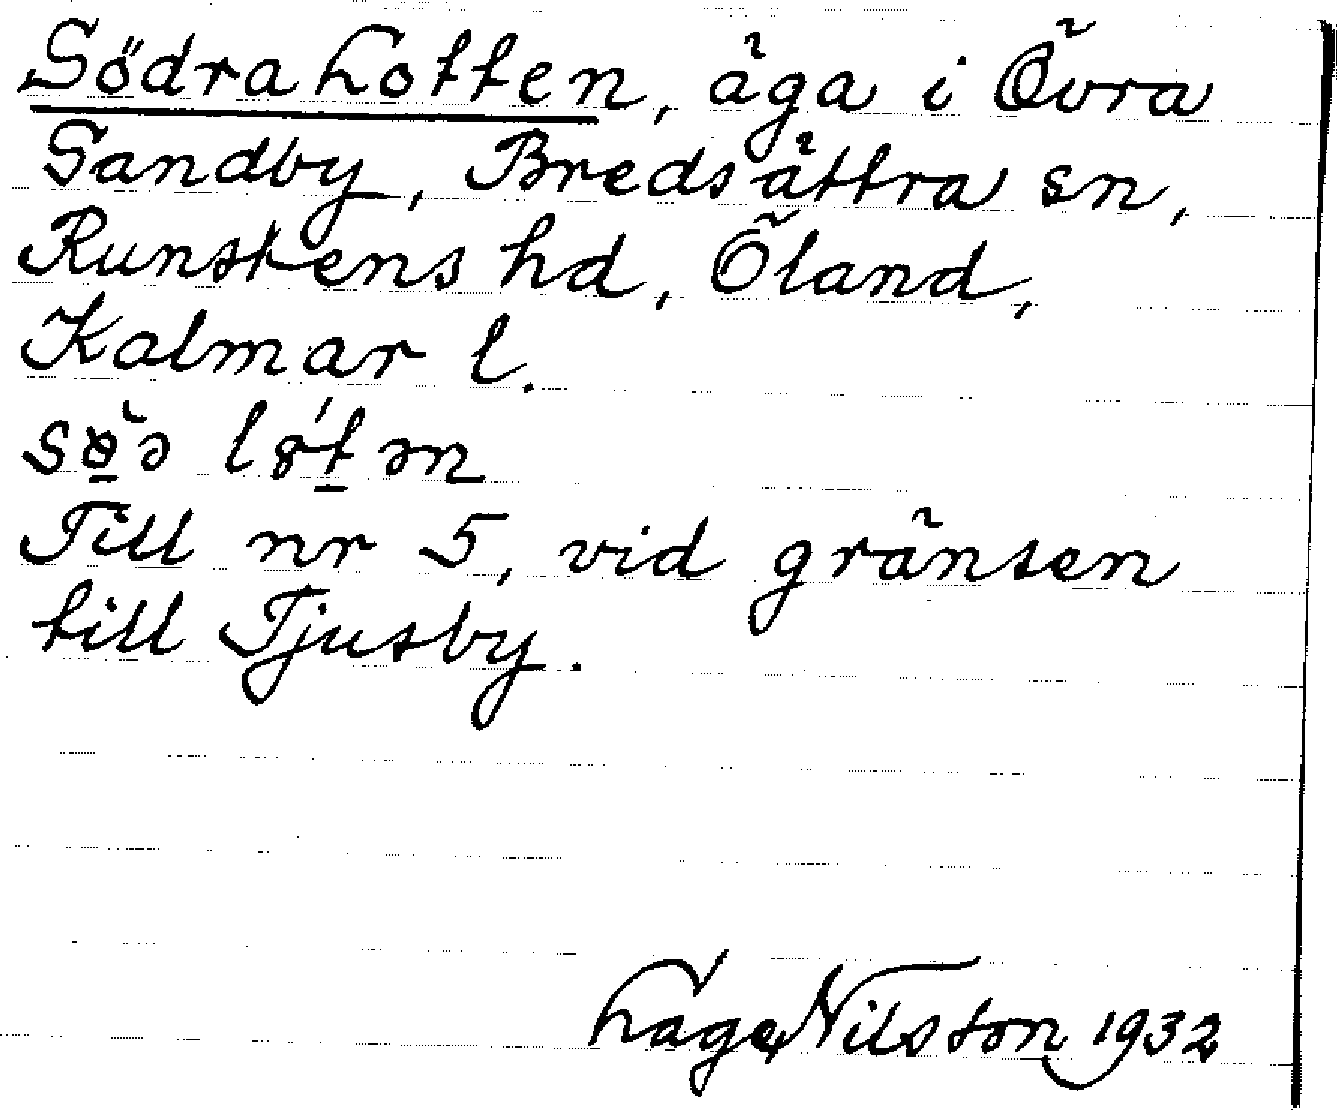 Södra Lotten, äga i Övra
Sandby, Bredsättra sn,
Runstens hd, Öland,
Kalmar l.
Till nr 5, vid gränsen
till Tjusby.
Hage Nilsson 1932